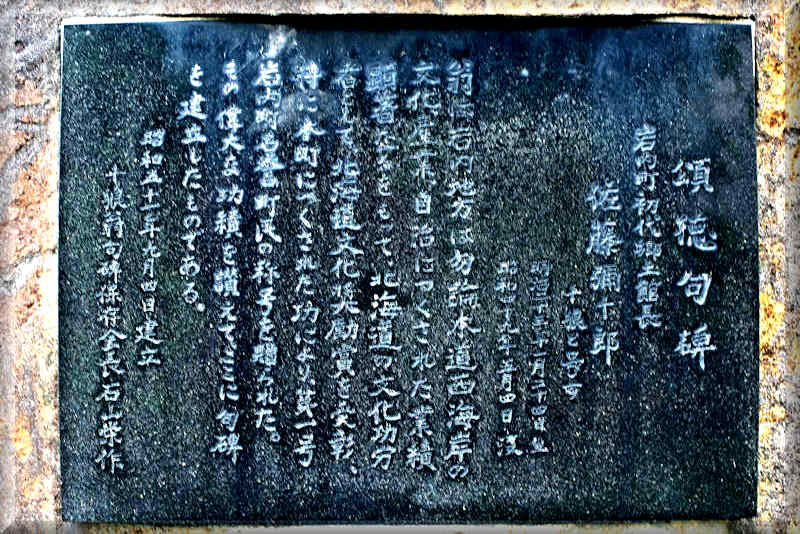 頌徳句碑
岩内町初代郷土館長
佐藤彌十郎
十狼と号す
明治二十三年十一月二十四日生
昭和四十九年五月四日没
翁は岩内地方は勿論本道西海岸の
文化産業自治につくされた業績
顕著なるをもって、北海道の文化功労
者として北海道文化奨励賞を受彰、
特に本町につくされた功により第一号
岩内町名誉町民の称号を贈られた。
その偉大な功積を讃えてここに句碑
を建立したものである。
昭和五十一年九月四日建立
翁句碑保存会長石山栄作